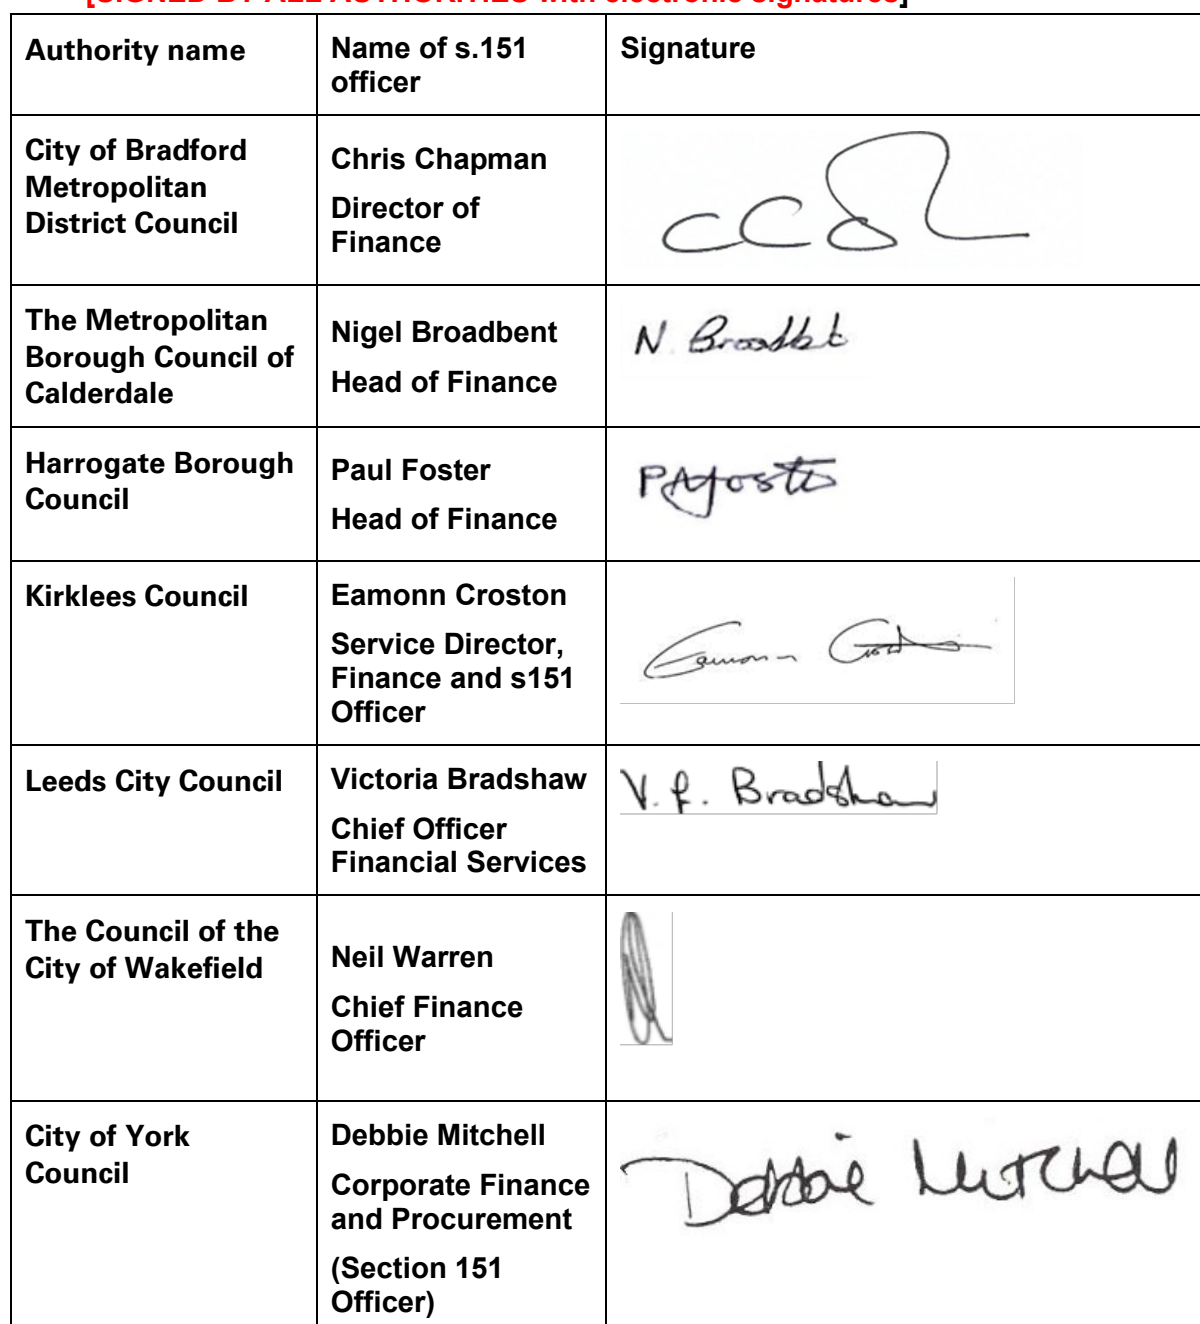 [SIGNED BY ALL AUTHORITIES with electronic signatures]
Authority name
Name of s.151
officer
Signature
City of Bradford
Metropolitan
District Council
Chris Chapman
Director of
Finance
The Metropolitan
Borough Council of
Calderdale
Nigel Broadbent
Head of Finance
N. Broadbt
Harrogate Borough
Council
Paul Foster
Head of Finance
PAFoster
Kirklees Council
Eamonn Croston
Service Director,
Finance and s151
Officer
Eamonn
Leeds City Council
Victoria Bradshaw
Chief Officer
Financial Services
Bradshaw
The Council of the
City of Wakefield
Neil Warren
Chief Finance
Officer
City of York
Council
Debbie Mitchell
Corporate Finance
and Procurement
(Section 151
Officer)
Debbie Mitchell